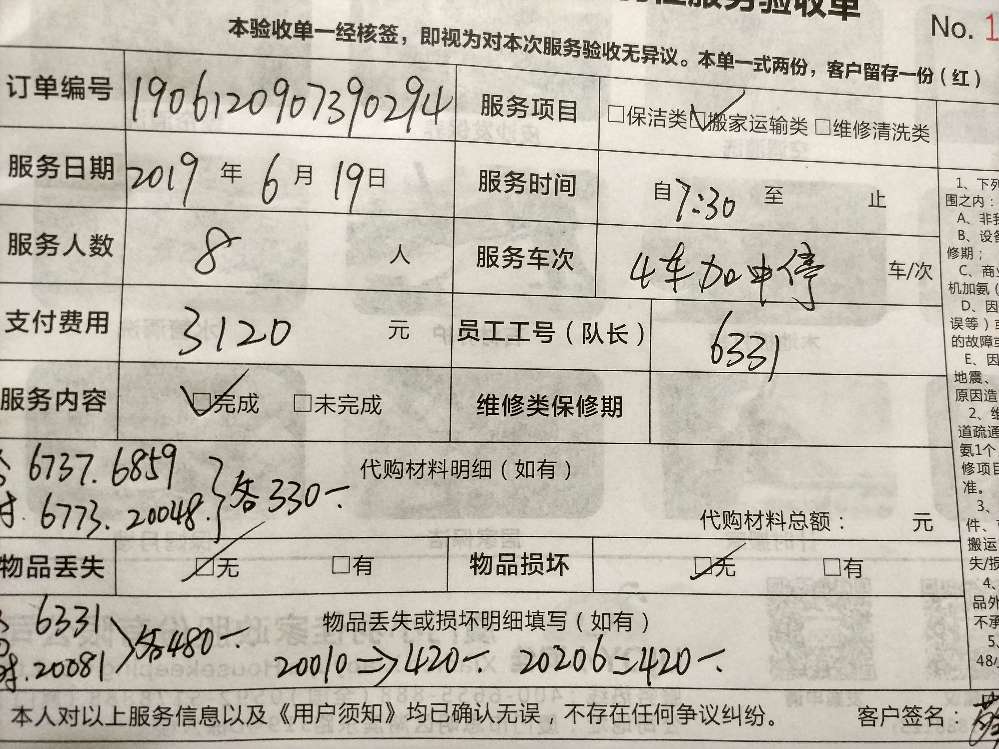 服务验收单
No. 1
本验收单一经核签，即视为对本次服务验收无异议。本单一式两份，客户留存一份（红）
订单编号 1906120907390294 服务项目 □保洁类 ☑搬家运输类 □维修清洗类
服务日期 2019 年 6 月 19 日 服务时间 自 7:30 至 止
服务人数 8 人 服务车次 4车加中停 车/次
支付费用 3120 元 员工工号（队长） 6331
服务内容 ☑完成 □未完成 维修类保修期
代购材料明细（如有）
6737. 6859
6773. 20048. } 各330一
代购材料总额： 元
物品丢失 ☑无 □有 物品损坏 ☑无 □有
物品丢失或损坏明细填写（如有）
6331
20081 } 各480一 20010 => 420一 20206 = 420一
本人对以上服务信息以及《用户须知》均已确认无误，不存在任何争议纠纷。 客户签名：
1、下列
围之内：
A、非我
B、设备
修期；
C、商业
机加氨（
D、因
误等）或
的故障或
E、因
地震、
原因造
2、维
道疏通
氨1个
修项目
准。
3、
件、
搬运
失/损
4、
品外
不承
5、
48小